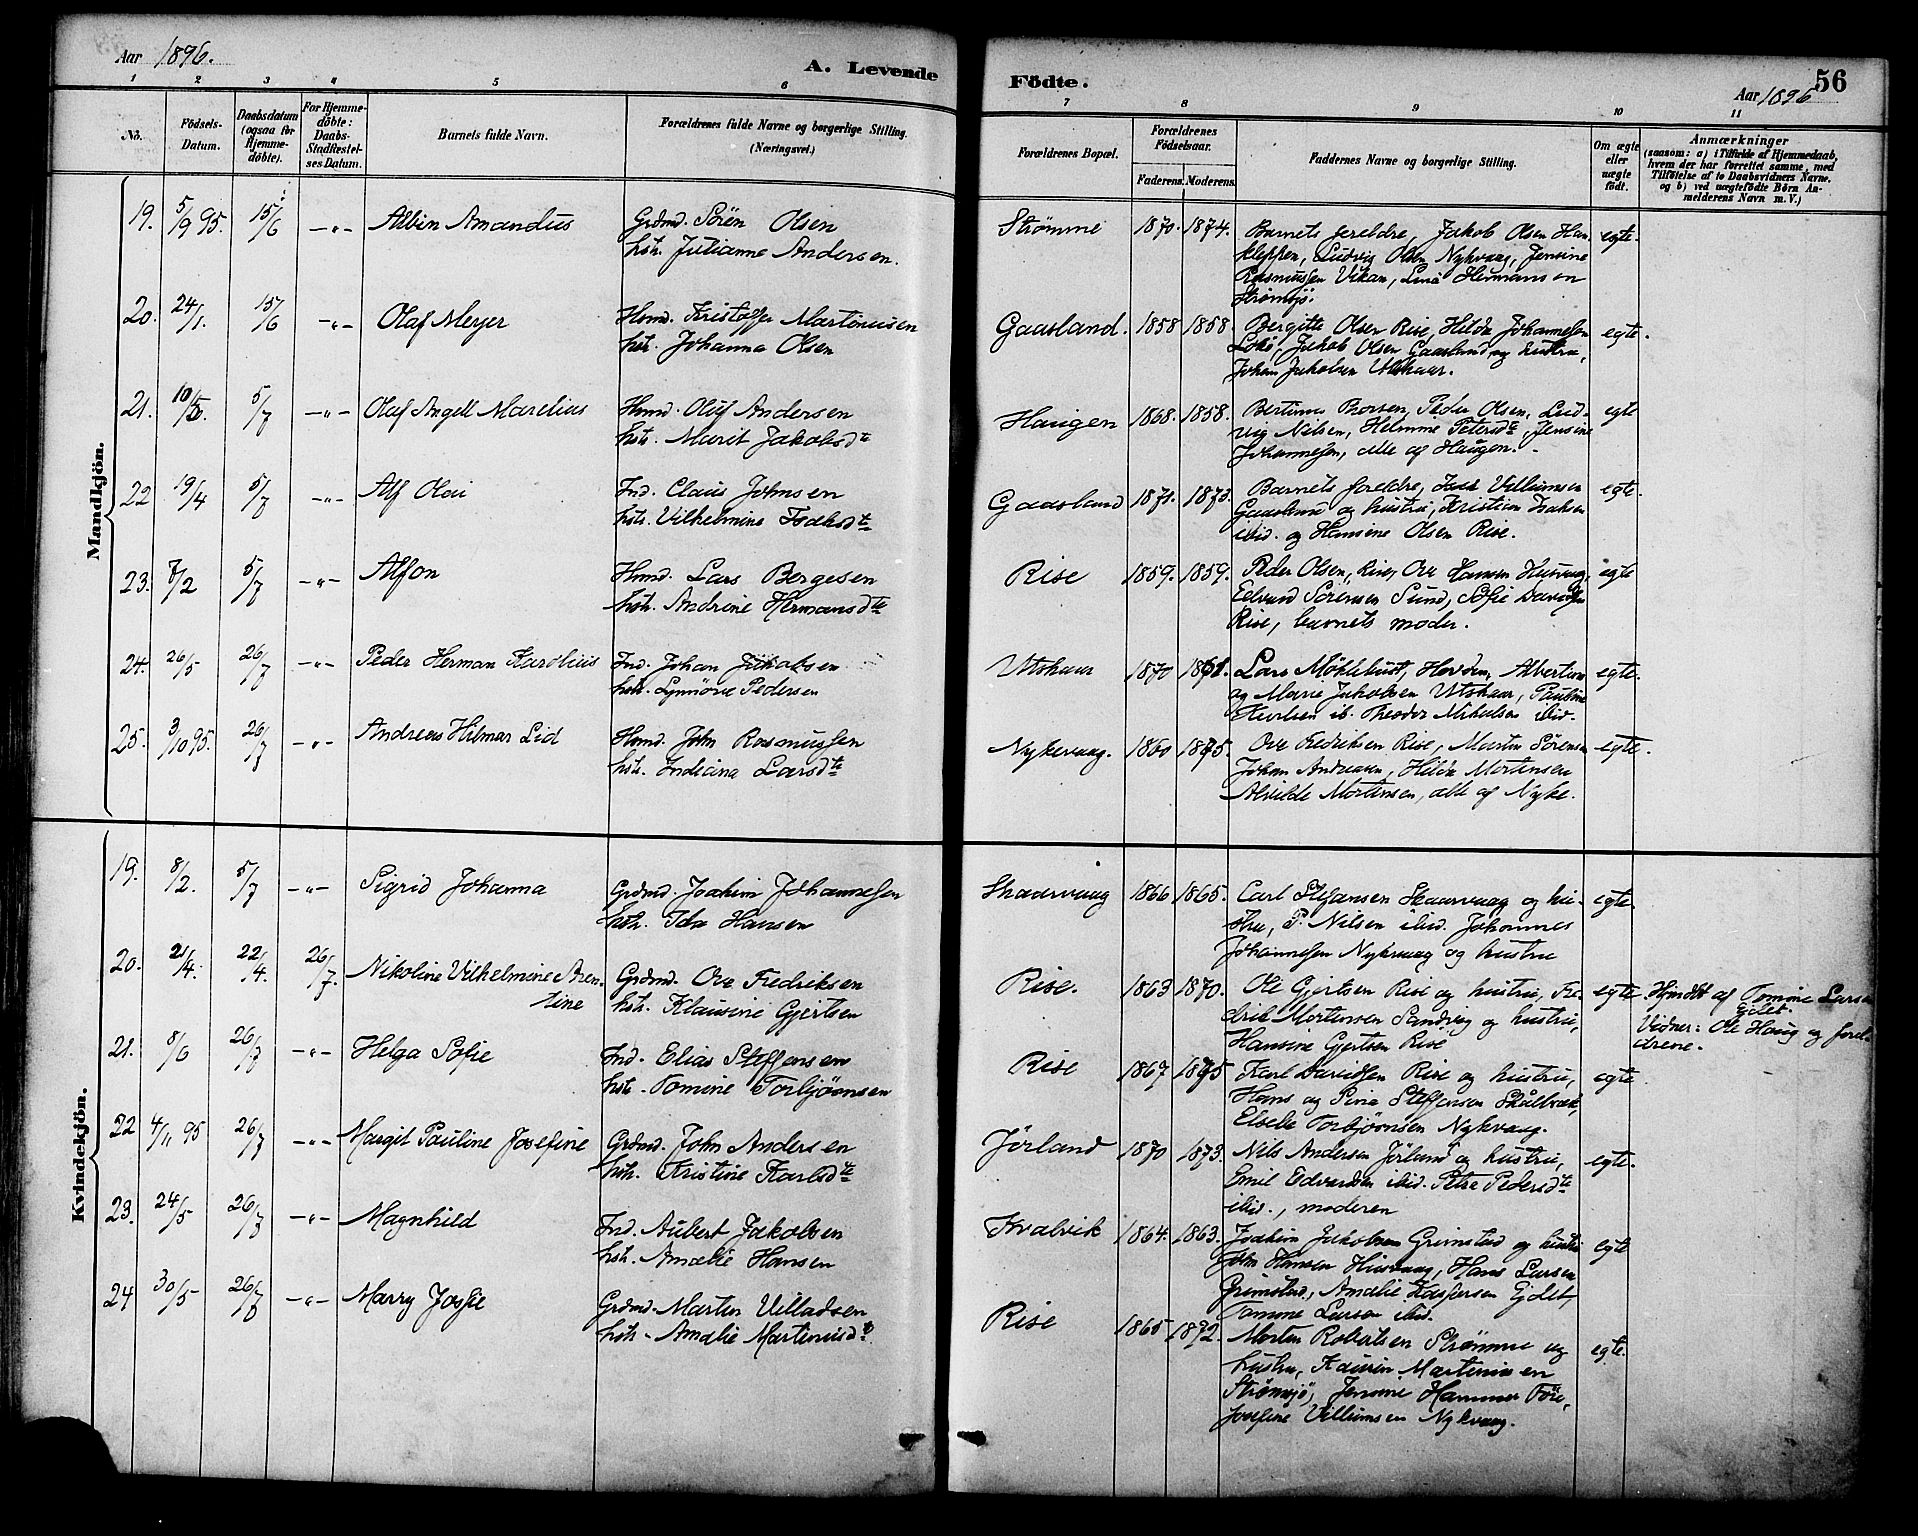 Aar 1896.
A. Levende
1 2 3 4 5 6
No.
Födsels-
Datum.
Daabsdatum
(ogsaa for
Hjemme-
döbte).
For Hjemme-
döbte:
Daabs-
Stadfæstel-
ses Datum.
Barnets fulde Navn.
Forældrenes fulde Navne og borgerlige Stilling.
(Næringsvei.)
Mandkjön.
19. 5/9 95. 15/6 —"— Albin Amandus
Grdmd. Sörén Olsen
hstr. Julianne Andersen.
20. 24/1. 15/6 —"— Olaf Meyer
Hsmd. Kristoffer Martinussen
hstr. Johanna Olsen
21. 5/7 —"— Olaf Angell Marelius
Hsmd. Oluf Andersen
hstr. Marit Jakobsdtr
22 19/4 5/7 —"— Alf Olai
Ind. Claus Johnsen
hstr. Vilhelmine Isaksdtr
23. 7/2 5/7 —"— Alfon
Hsmd. Lars Bergesen
hstr. Andrine Hermansdtr
24. 26/5 26/7 —"— Peder Herman Karolius
Ind. Johan Jakobsen
hstr. Lynnöve Pedersen
25. 3/10 95. 26/7 —"— Andreas Hilmar Lid
Hsmd. John Rasmussen
hstr. Indiana Larsdtr
Kvindekjön.
19. 8/2. 5/7 —"— Sigrid Johanna
Grdmd. Joakim Johannesen
hstr. Ida Hansen
20. 21/4. 22/4. 26/7. Nikoline Vilhelmine Aren-
tine
Grdmd. Ove Fredriksen
hstr. Klausine Gjertsen
21. 8/6 26/7 —"— Helga Sofie
Ind. Elias Steffensen
hstr. Tomine Torbjörnsen
22 4/11 95 26/7 —"— Margit Pauline Josefine
Grdmd. John Andersen
hstr. Kristine Karlsdtr
23. 24/5 26/7 —"— Magnhild
Ind. Aubert Jakobsen
hstr. Amalie Hansen
24 30/5 26/7 —"— Marry Josfie
Grdmd. Martin Villadsen
hstr. Amalie Martinusdtr
Födte.
56
Aar 1896
7 8 9 10 11
Forældrenes Bopæl.
Forældrenes
Födselsaar.
Faderens. Moderens.
Faddernes Navne og borgerlige Stilling.
Om ægte
eller
uægte
födt.
Anmærkninger
(saasom: a) i Tilfælde af Hjemmedaab,
hvem der har forrettet samme, med
Tilföielse af to Daabsvidners Navne,
og b) ved uægtefödte Börn An-
melderens Navn m. V.)
Strømme 1870. 1874. Barnets foreldre, Jakob Olsen Han- egte.
kleppen, Ludvig Olsen Nykvaag, Jensine
Rasmussen Vikan, Lina Hermansen
Strömsjö.
Gaasland. 1858 1858. Bergitte Olsen Rise, Hilda Johannesen egte.
Jakob Olsen Gaasland og hustru,
Johan Jakobsen Utskaar.
Haugen 1868. 1858. Peder Olsen, Lud- egte
vig Nilsen, Helmine Petersdtr, Jensine
Johannesen, alle af Haugen.
Gaasland 1871. 1873. Barnets foreldre, Isak Villumsen egte.
Gaasland og hustru, Kristian Isaksen
ibid. og Hansine Olsen Rise.
Rise 1859. 1859. Peder Olsen, Rise, Ove Hansen Husvaag, egte
Edvard Sörensen Sund, Sofie Davidsen
Rise, barnets moder.
Utskaar 1870 Lars Møklebust, Hovden, egte.
og Marie Jakobsen Utskaar, Pauline
ib. Theodor Nikolsen ibid.
Nykevaag. 1860 1875. Ove Fredriksen Rise, Martin Sörensen egte.
Johan Andreasen, Hilda Mortensen
Alvilde Mortensen, alle af Nyke.
Skaarvaag 1866 1865. Carl Stefansen Skaarvaag og hu- egte.
stru, P. Nilsen ibid. Johannes
Johannesen Nykvaag og hustru
Rise. 1863 1870. Ole Gjertsen Rise og hustru, Fre- egte
drik Mortensen Sandvag og hustru,
Hansine Gjertsen Rise
Hjmdbt af Tomine Larsen
Ejdet.
Vidner: Ole Haug og forel-
drene.
Rise 1867 1875 Karl Davidsen Rise og hustru, egte
Hans og Pina Steffensen Skålbræk,
Elsebe Torbjörnsen Nykvaag.
Jørland 1870 1873. Nils Andersen Jörland og hustru, egte.
Emil Edvardsen ibid. Petra Pedersdtr
ibid., moderen
Kvalvik 1864. 1863. Joakim Jakobsen Grimstad og hustru egte
John Hansen Husvaag, Hans Larsen
Grimstad, Amalie Kaspersen Ejdet,
Tomine Larsen ibid.
Rise 1865 1872. Morten Robertsen Strömme og egte.
hustru, Martinussen
Strömsjö, Jensine Hammer Före,
Josefine Villumsen Nykvaag.